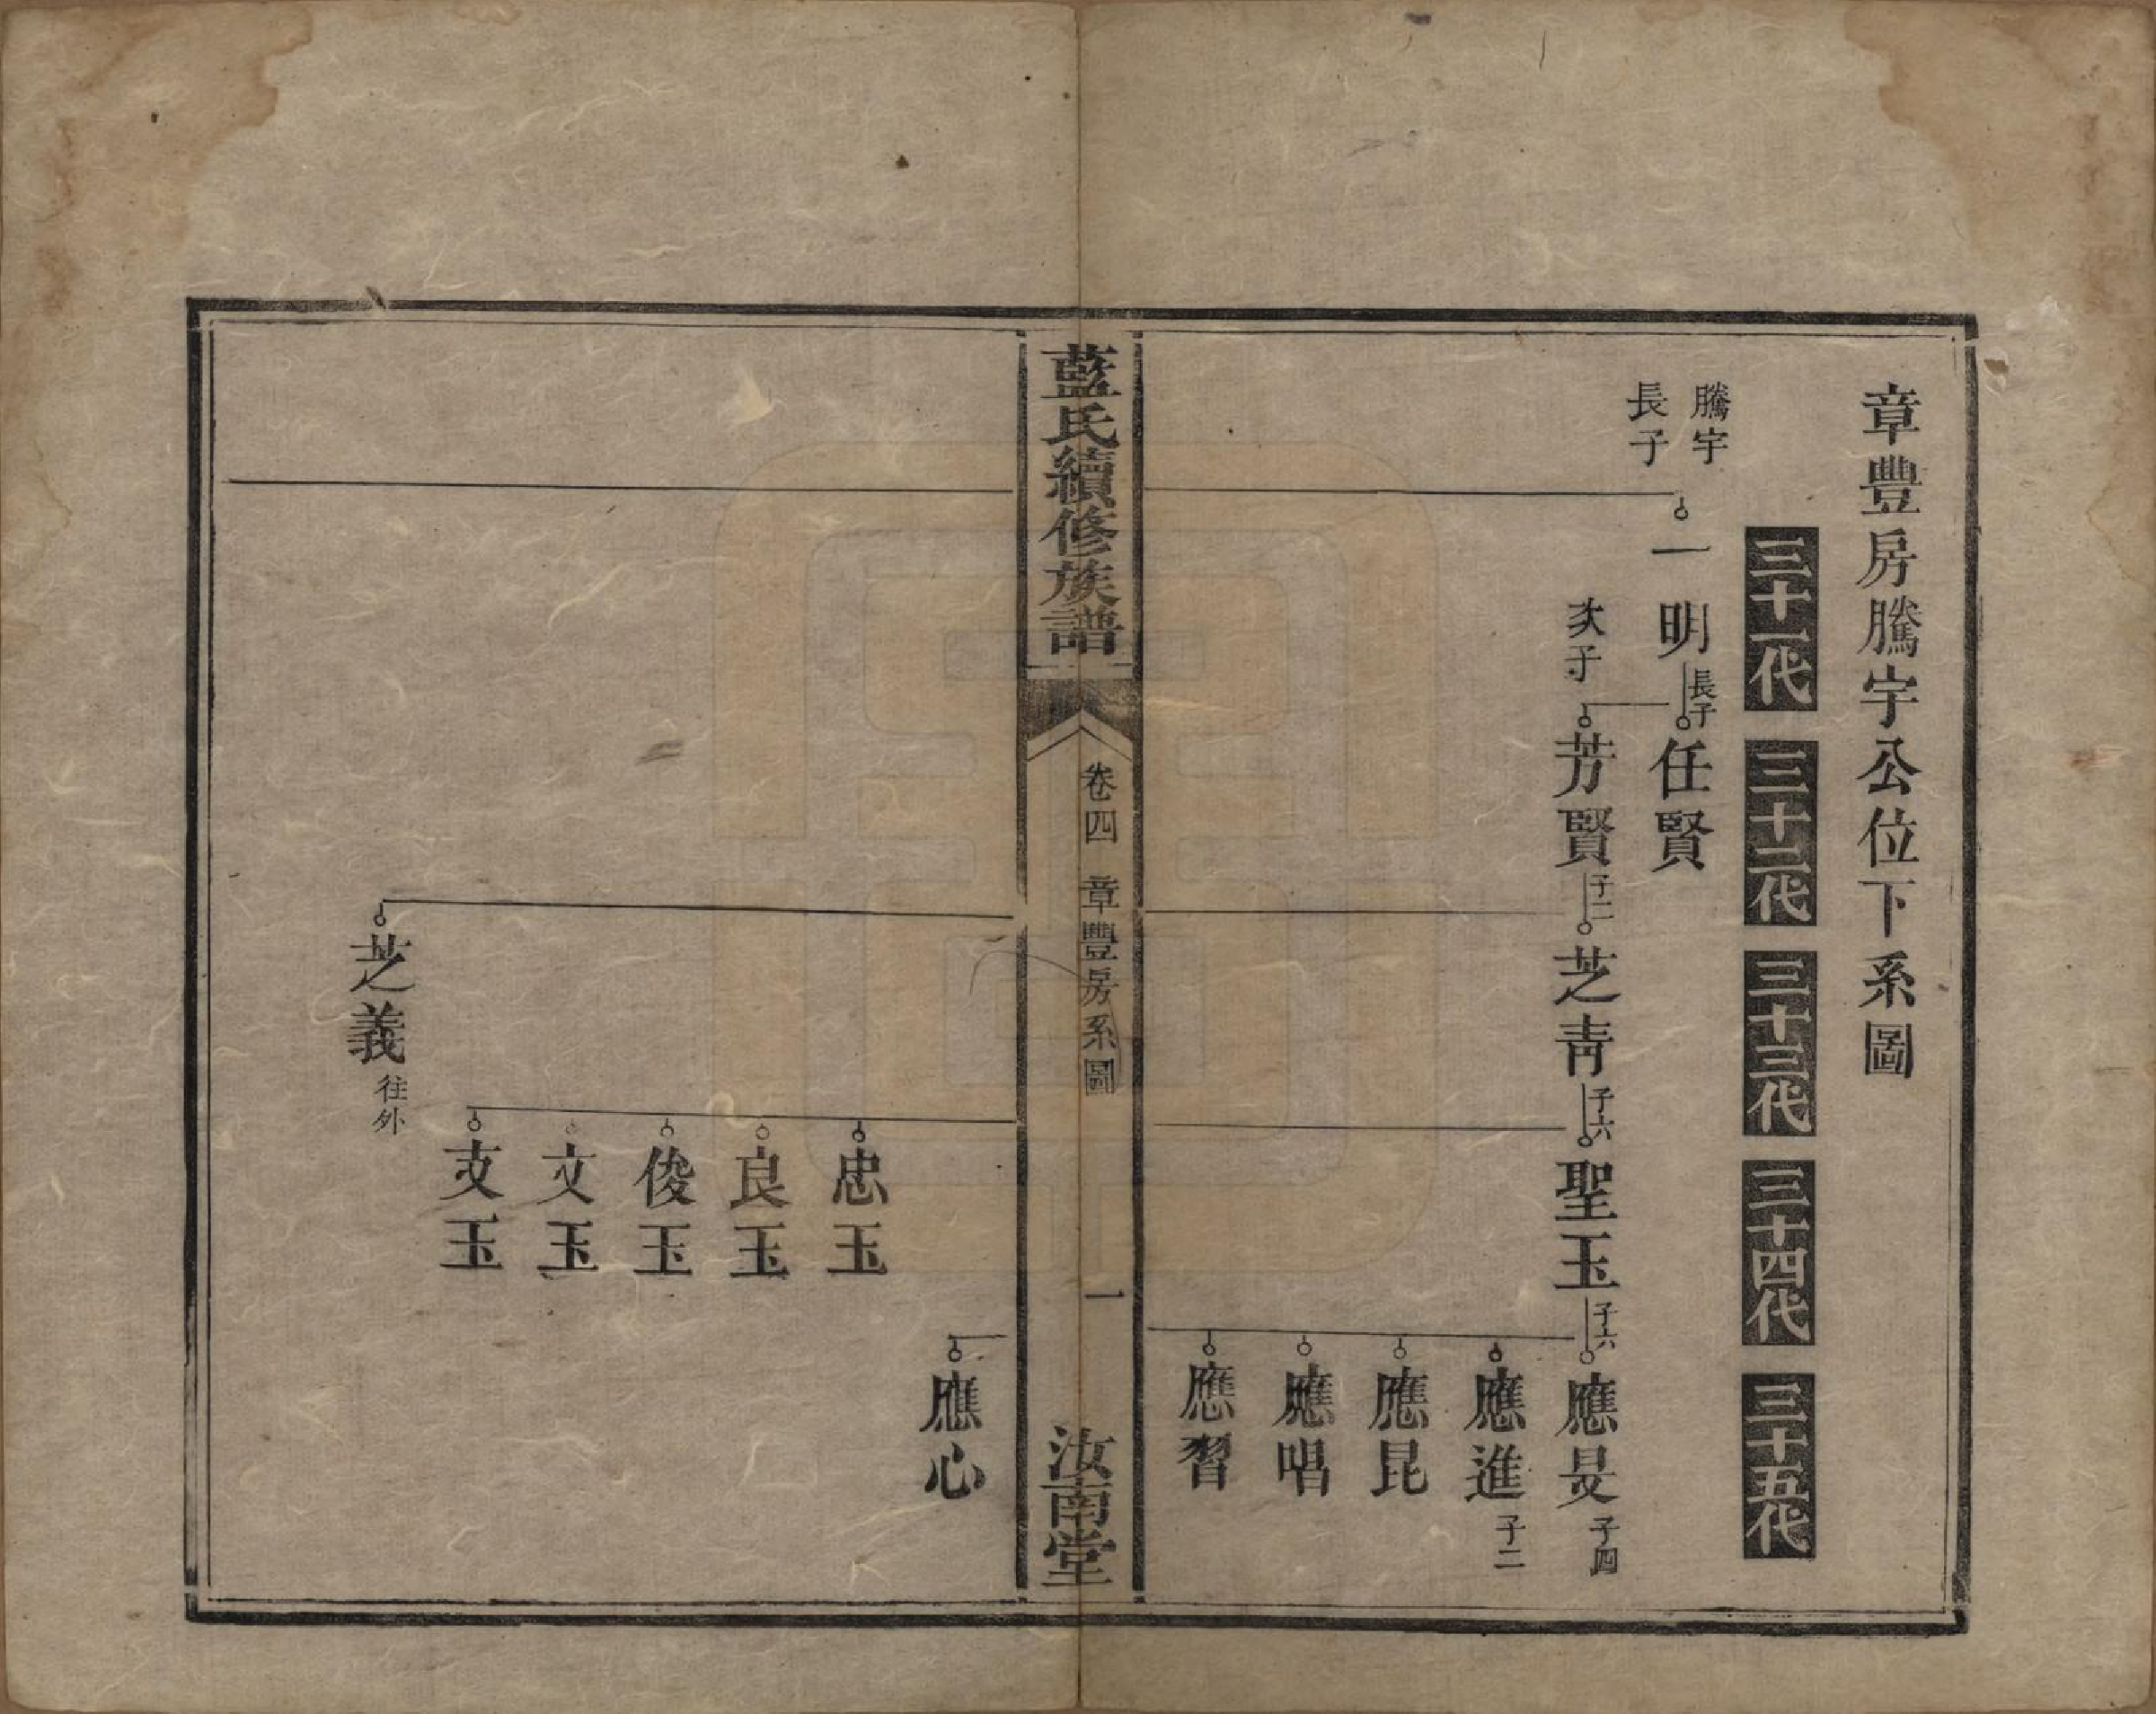 章豐房騰宇公位下系圖
三十一代
三十二代
三十三代
三十四代
三十五代
騰宇
長子
一明
長子
任賢
次子
芳賢
子二
芝青
子六
聖玉
子六
應旻
子四
應進
子二
應昆
應唱
應習
藍氏續修族譜
卷四
章豐房系圖
一
汝南堂
應心
忠玉
良玉
俊玉
文玉
支玉
芝義
往外